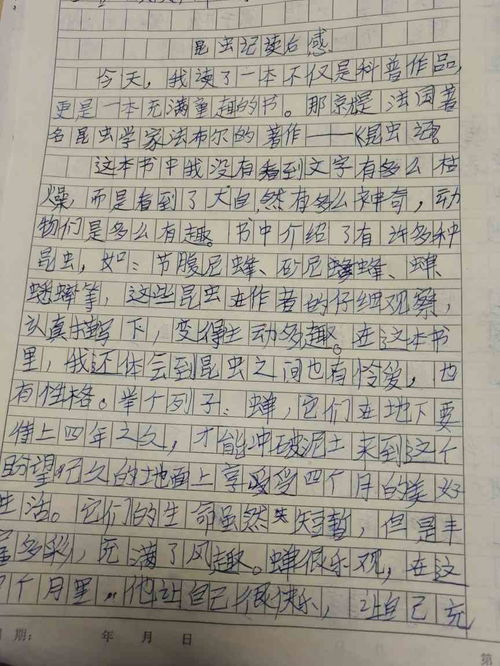 昆虫记读后感
今天，我读了一本不仅是科普作品，
更是一本充满童趣的书。那就是法国著
名昆虫学家法布尔的著作——《昆虫记》
这本书中我没有看到文字有多么枯
燥，而是看到了大自然有多么神奇，动
物们是多么有趣。书中介绍了有许多种
昆虫，如：节腹泥蜂、砂泥蜂、蝉、
蟋蟀等，这些昆虫在作者的仔细观察，
认真描写下，变得生动多趣。在这本书
里，我还体会到昆虫之间也有怜爱，也
有性格。举个列子：蝉，它们在地下要
待上四年之久，才能冲破泥土来到这个
盼望已久的地面上享受四个月的美好
生活。它们的生命虽然短暂，但是丰
富多彩，充满了风趣。蝉很乐观，在这
个月里，他让自己很快乐，让自己充
期：
年 月 日
第